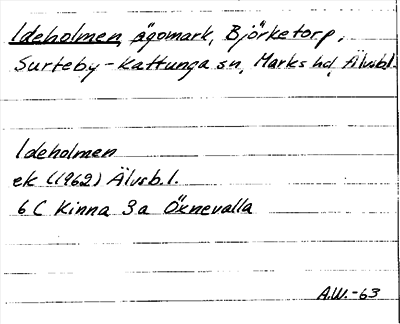 Ideholmen, ägomark, Björketorp,
Surteby-Kattunga sn, Marks hd, Älvsbl.
Ideholmen
ek (1962) Älvsb.l.
6 C Kinna 3a Öxnevalla
A.W.-63